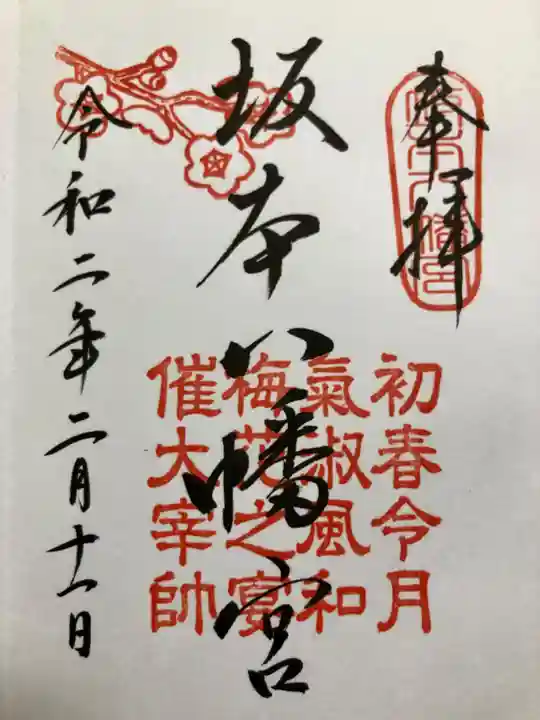 奉拝
坂本八幡宮
坂本八幡宮
初春令月
氣淑風和
梅花之宴
催大宰帥
令和二年二月十一日